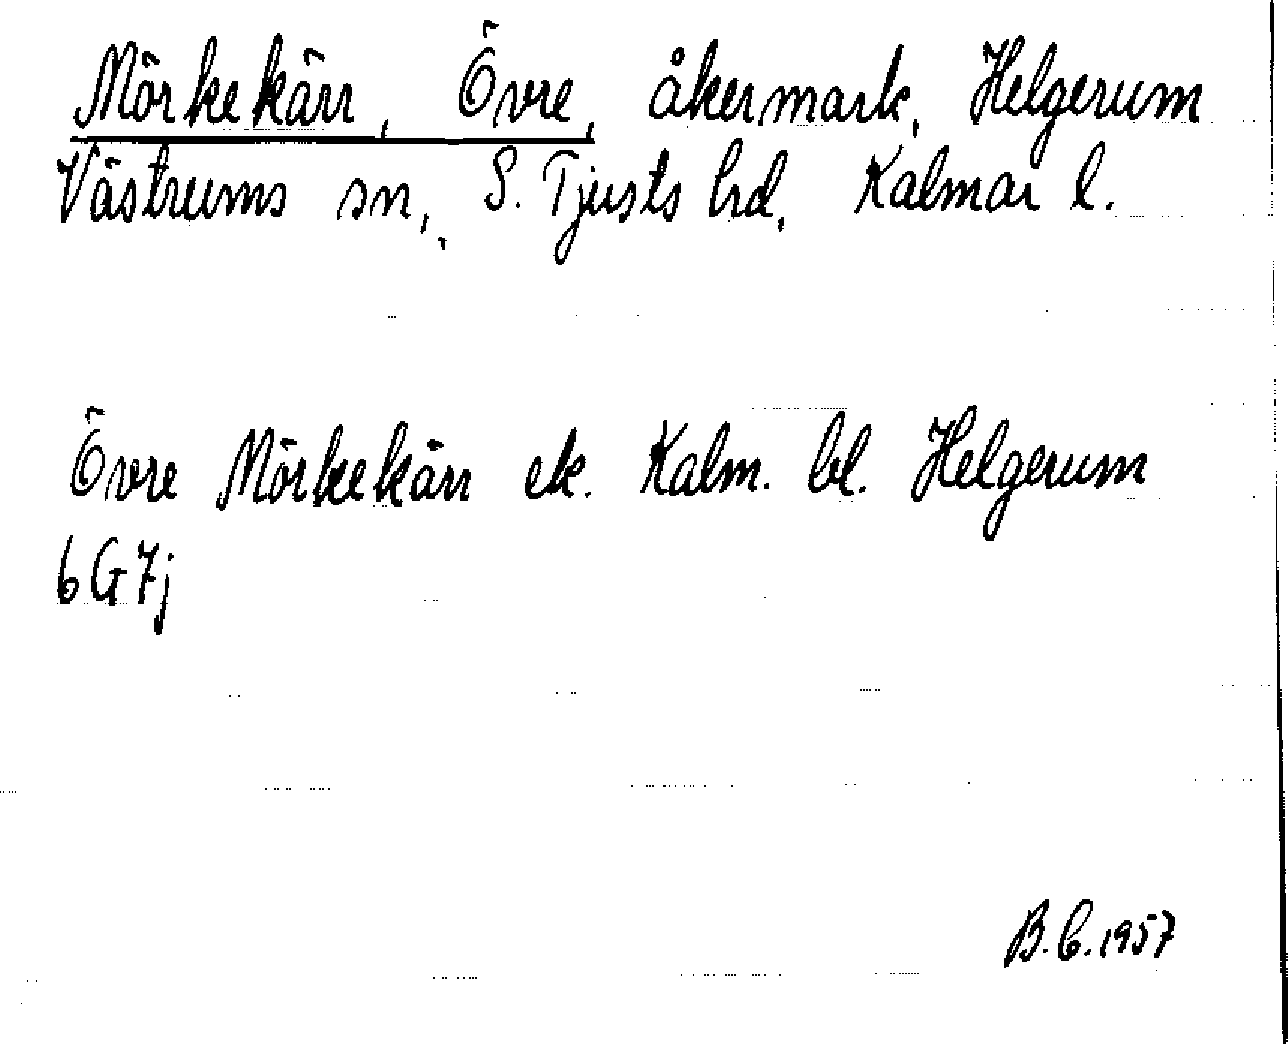 Mörkekärr, Övre, åkermark, Helgerum
Västrums sn, S. Tjusts hd, Kalmar l.
Övre Mörkekärr ek. Kalm. bl. Helgerum
6G7j
B.C. 1957